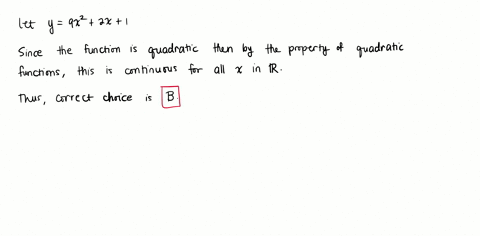 Let y = 9x² + 2x + 1
Since the function is quadratic then by the property of quadratic
functions, this is continuous for all x in ℝ.
Thus, correct choice is B.